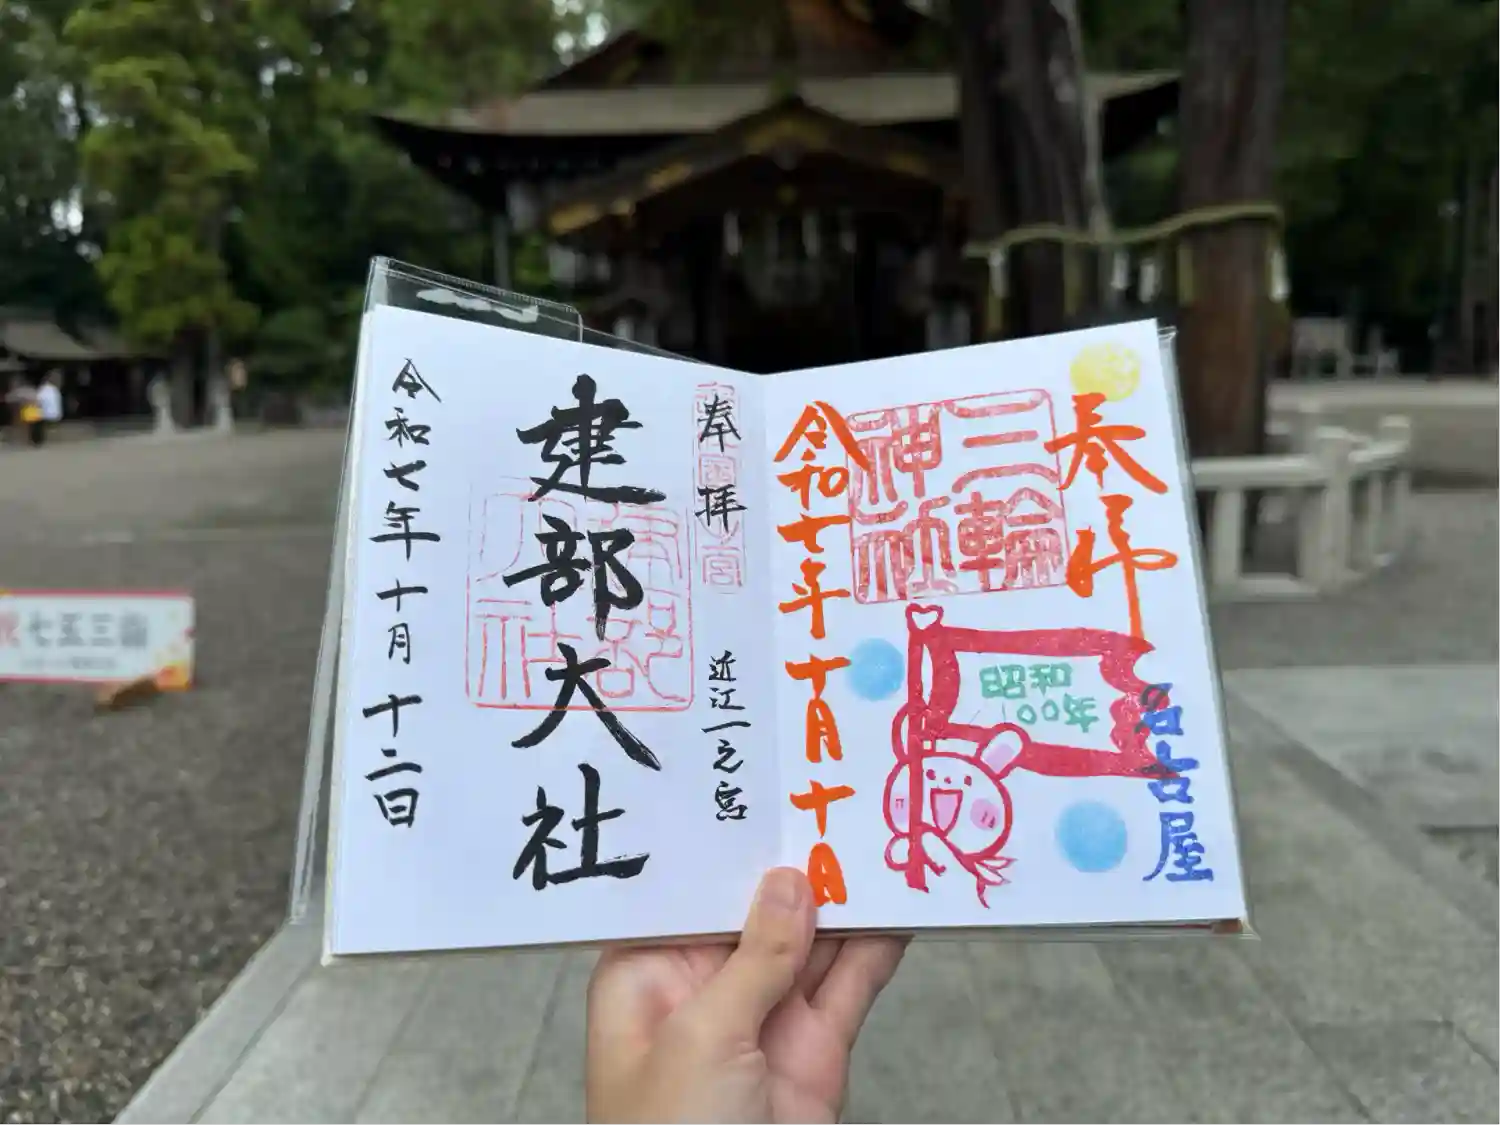 奉拝
三輪
神社
令和七年十月十日
昭和
100年
名古屋
奉拝
近江一之宮
建部大社
令和七年十月十二日
七五三